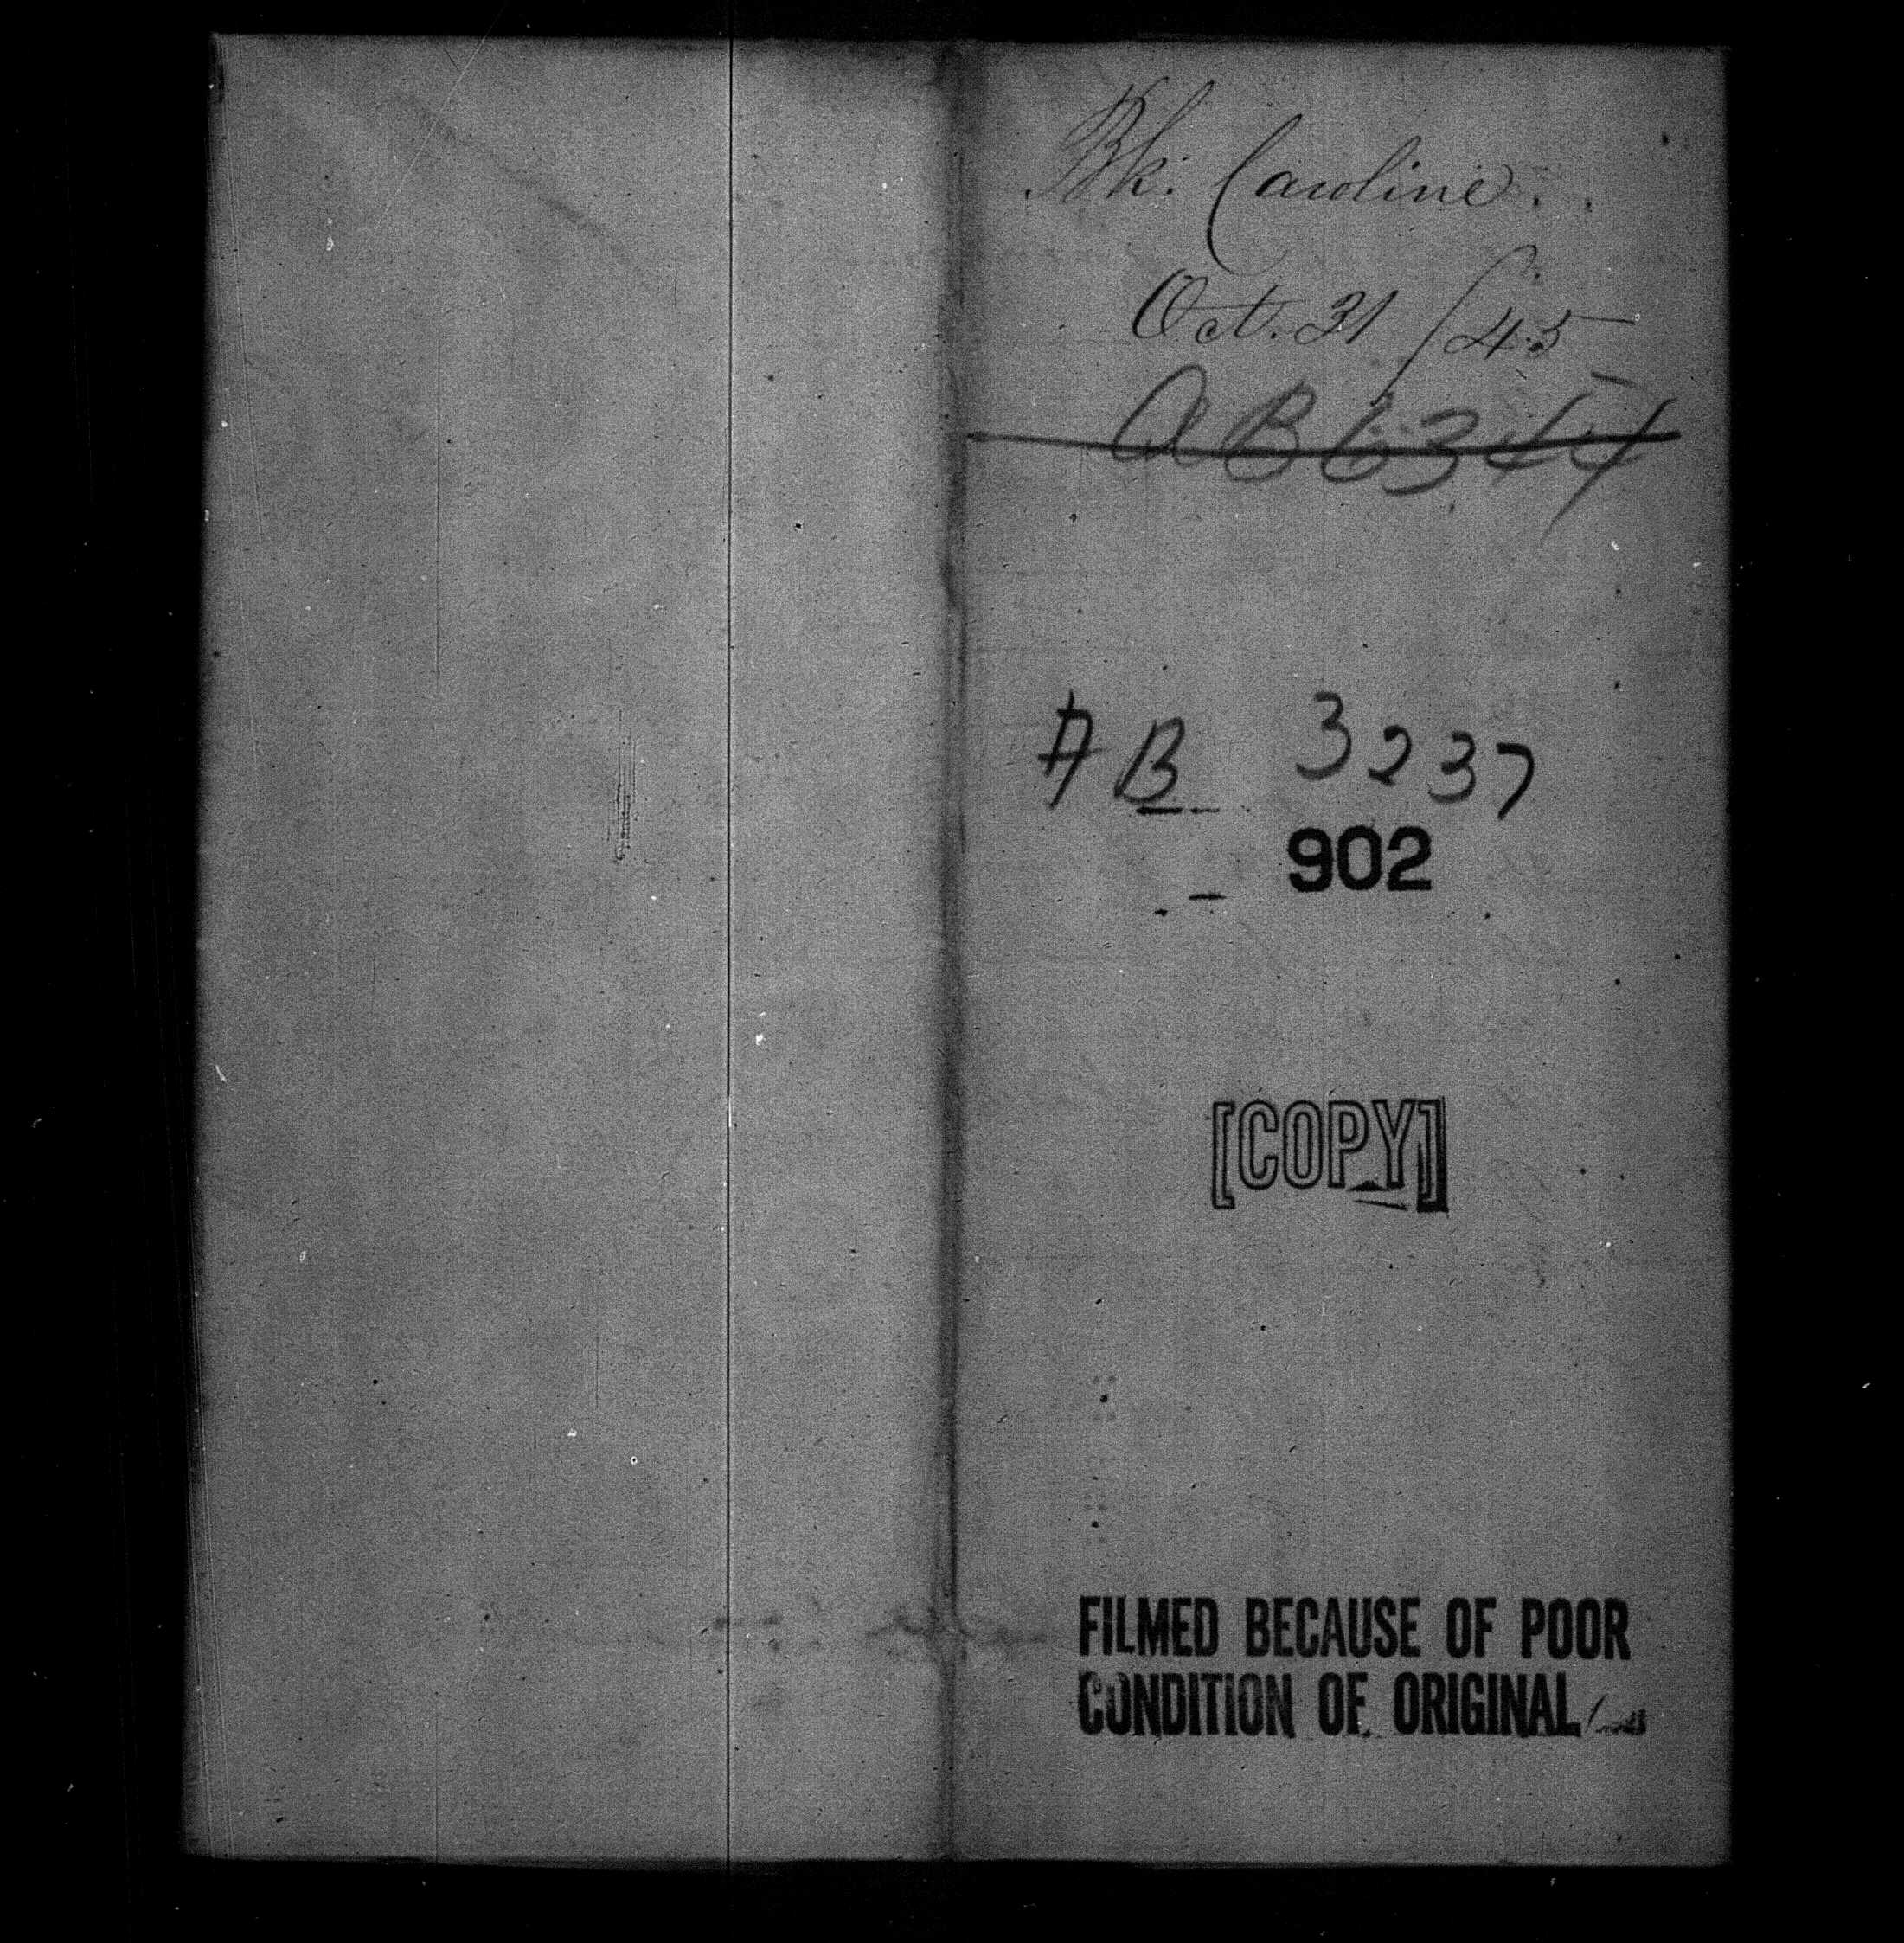 Bk. Caroline.
Oct. 31 /45
AB6344
AB 3237
902
[COPY]
FILMED BECAUSE OF POOR
CONDITION OF ORIGINAL